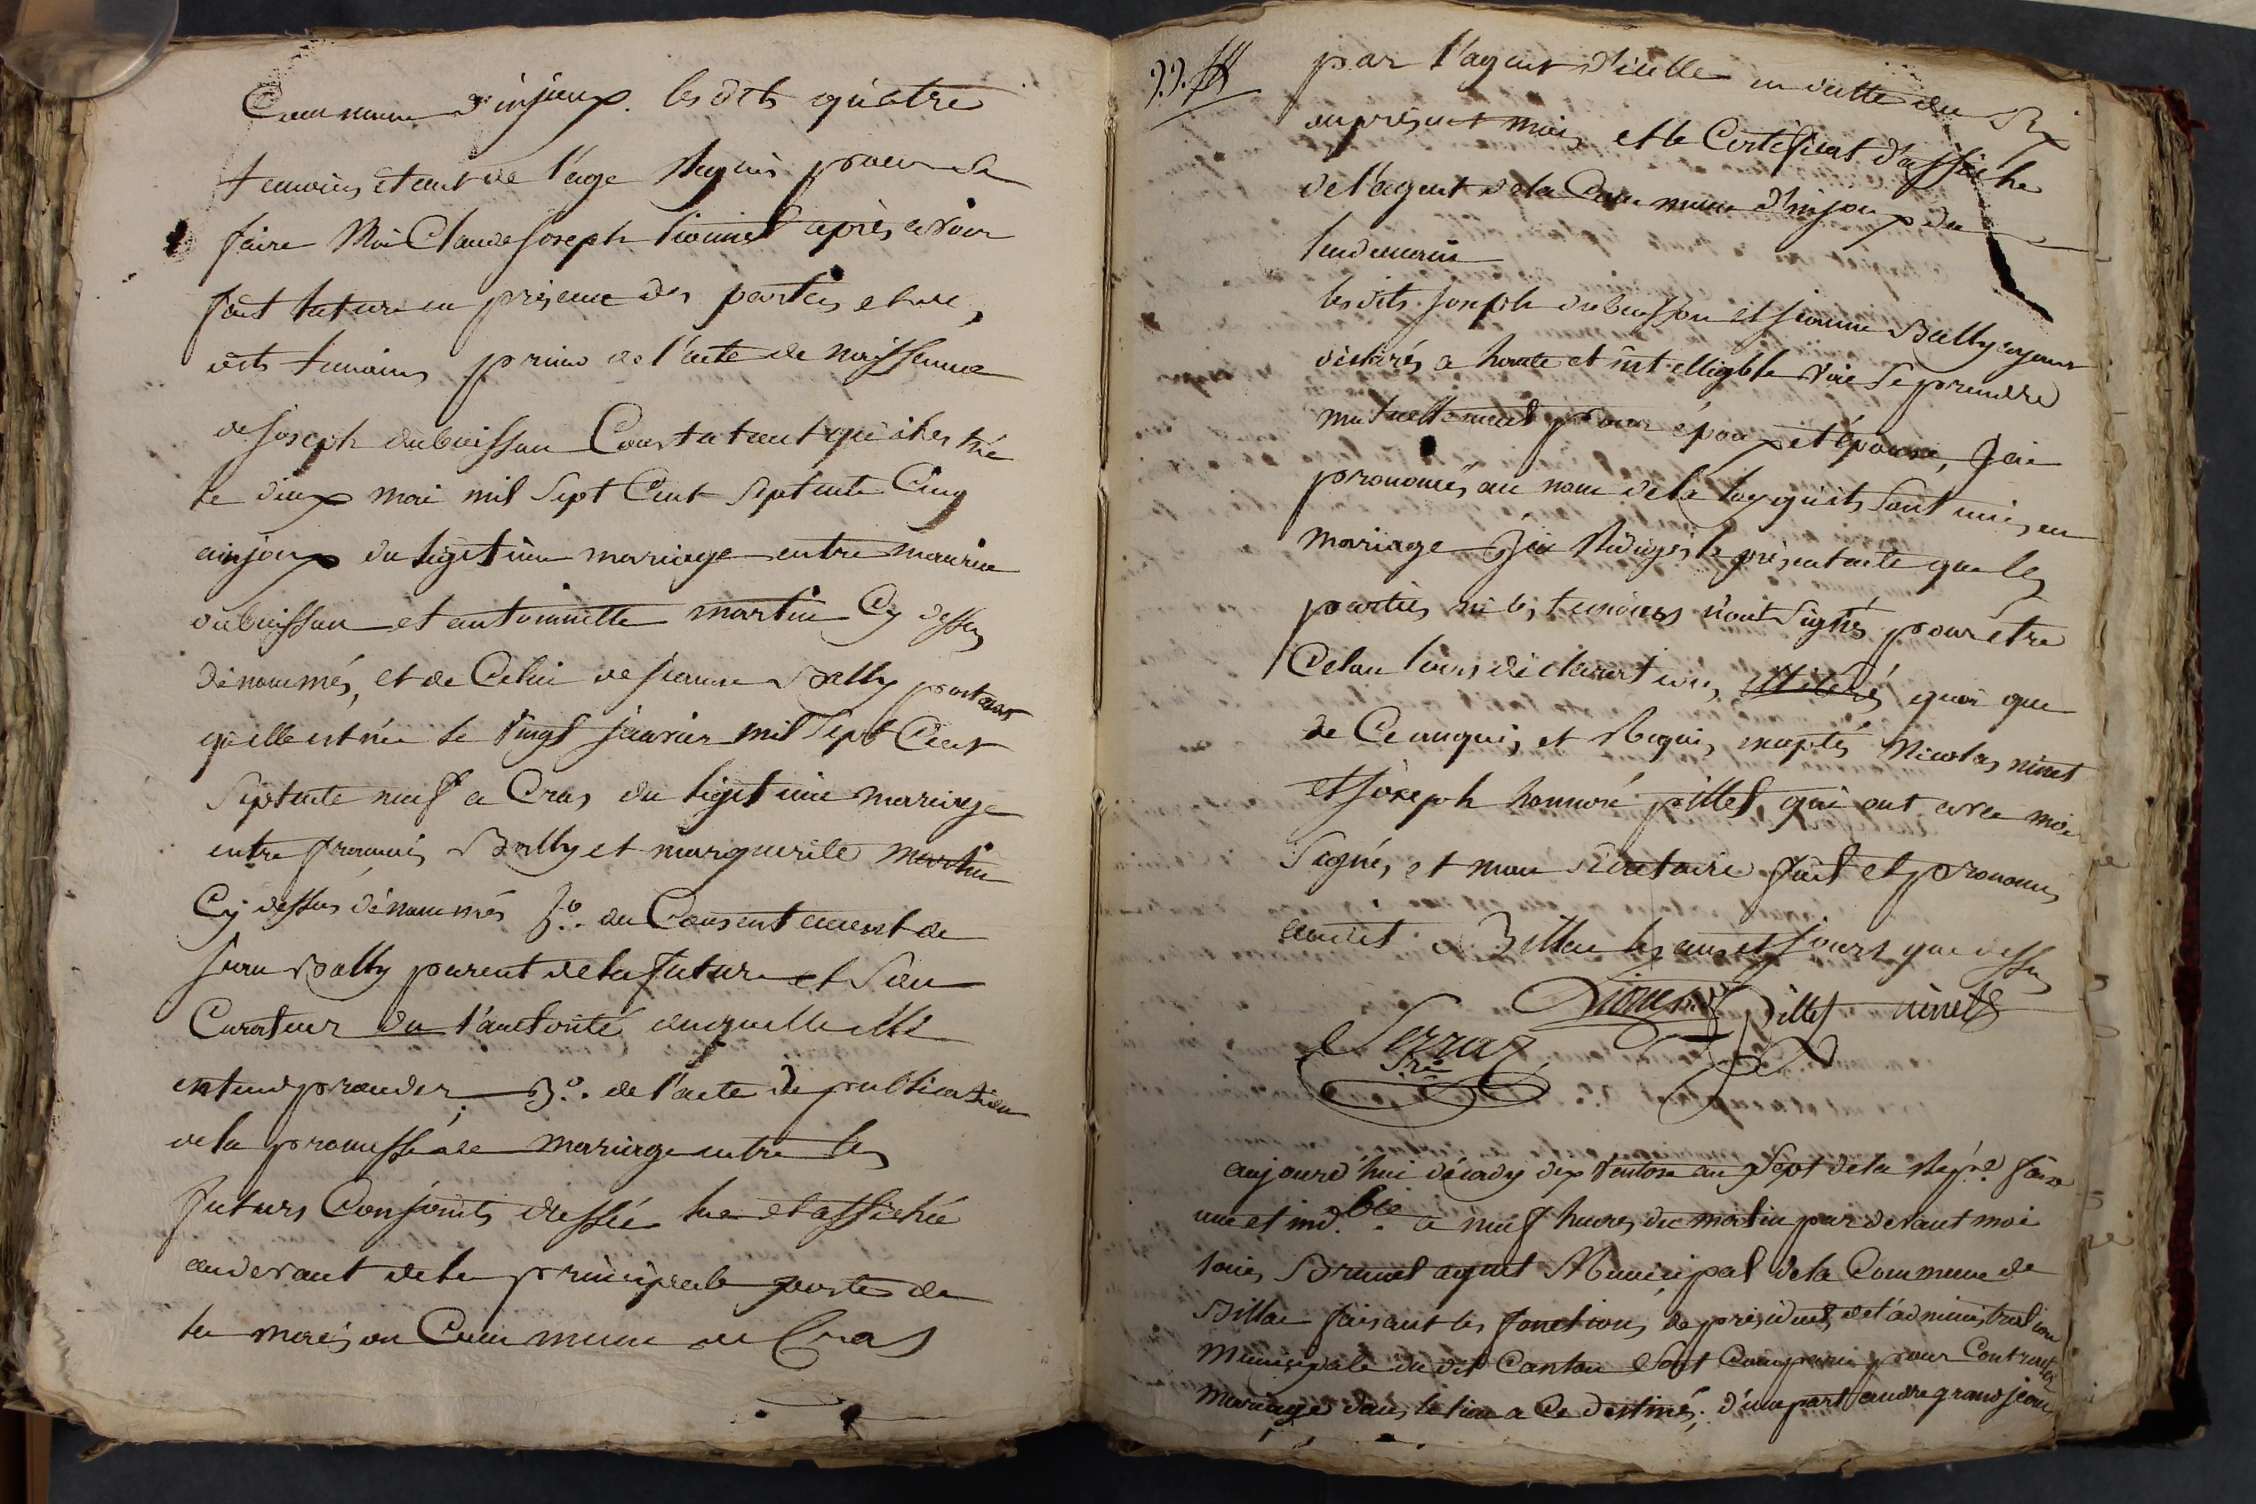 Commune d'injoux. lesdits quatre
temoins etant de l'age Requis pour ce
faire Moi Claude Joseph Lionnet après avoir
fait lecture en présence des parties et des
dits temoins primo de l'acte de naissance
de Joseph dubuisson Constatant qu'il est né
le deux mai mil Sept Cent Septente Cinq
ainjoux du legitime mariage entre maurice
dubuisson et antoinette martin Cy dessus
dénommés, et de Celui de jeanne Bally portant
qu'elle est née le vingt janvier mil Sept Cent
Septente neuf a Cras du legitime mariage
entre francois Bally et marguerite martin
Cy dessus dénommés 2.° du Consentement de
jean Bally parent de la future et Son
Curateur de l'autorité duquel elle
entend proceder, 3.° de l'acte de publication
de la promesse de mariage entre les
futurs Conjoints dressée lue et affichée
audevant de la principale porte de
la maison Commune de Cras
99.
par l'agent d'icelle en datte du Six
du présent mois, et le Certificat d'affiche
de l'agent de la Commune d'injoux du
lendemain
lesdits Joseph dubuisson et jeanne Bally ayant
déclarés a haute et intelligible voie Se prendre
mutuellement pour époux et épouse, J'ai
prononcés au nom de la loy qu'ils Sont unis en
mariage J'ai Rédigés le présent acte que les
parties ni les temoins n'ont Signés pour être
de leurs déclarations, quoi que
de Ce enquis et Requis, exceptés Nicolas ninet
et Joseph honnoré pillet qui ont avec moi
Signés et mon Sécretaire fait et prononcé
audit Billac les an et jours que dessus
Lionnet Pillet ninet
Serraz
Sre
aujourd'hui décady dix Ventose an Sept de la Rép.e fran
une et ind.ble a neuf heures du matin pardevant moi
louis Brunet agent Municipal de la Commune de
Billac faisant les fonctions de président de l'administration
Municipale du dit Canton Sont Comparus pour Contracter
Mariage dans le lieu a Ce destinés, d'une part andre grandjean